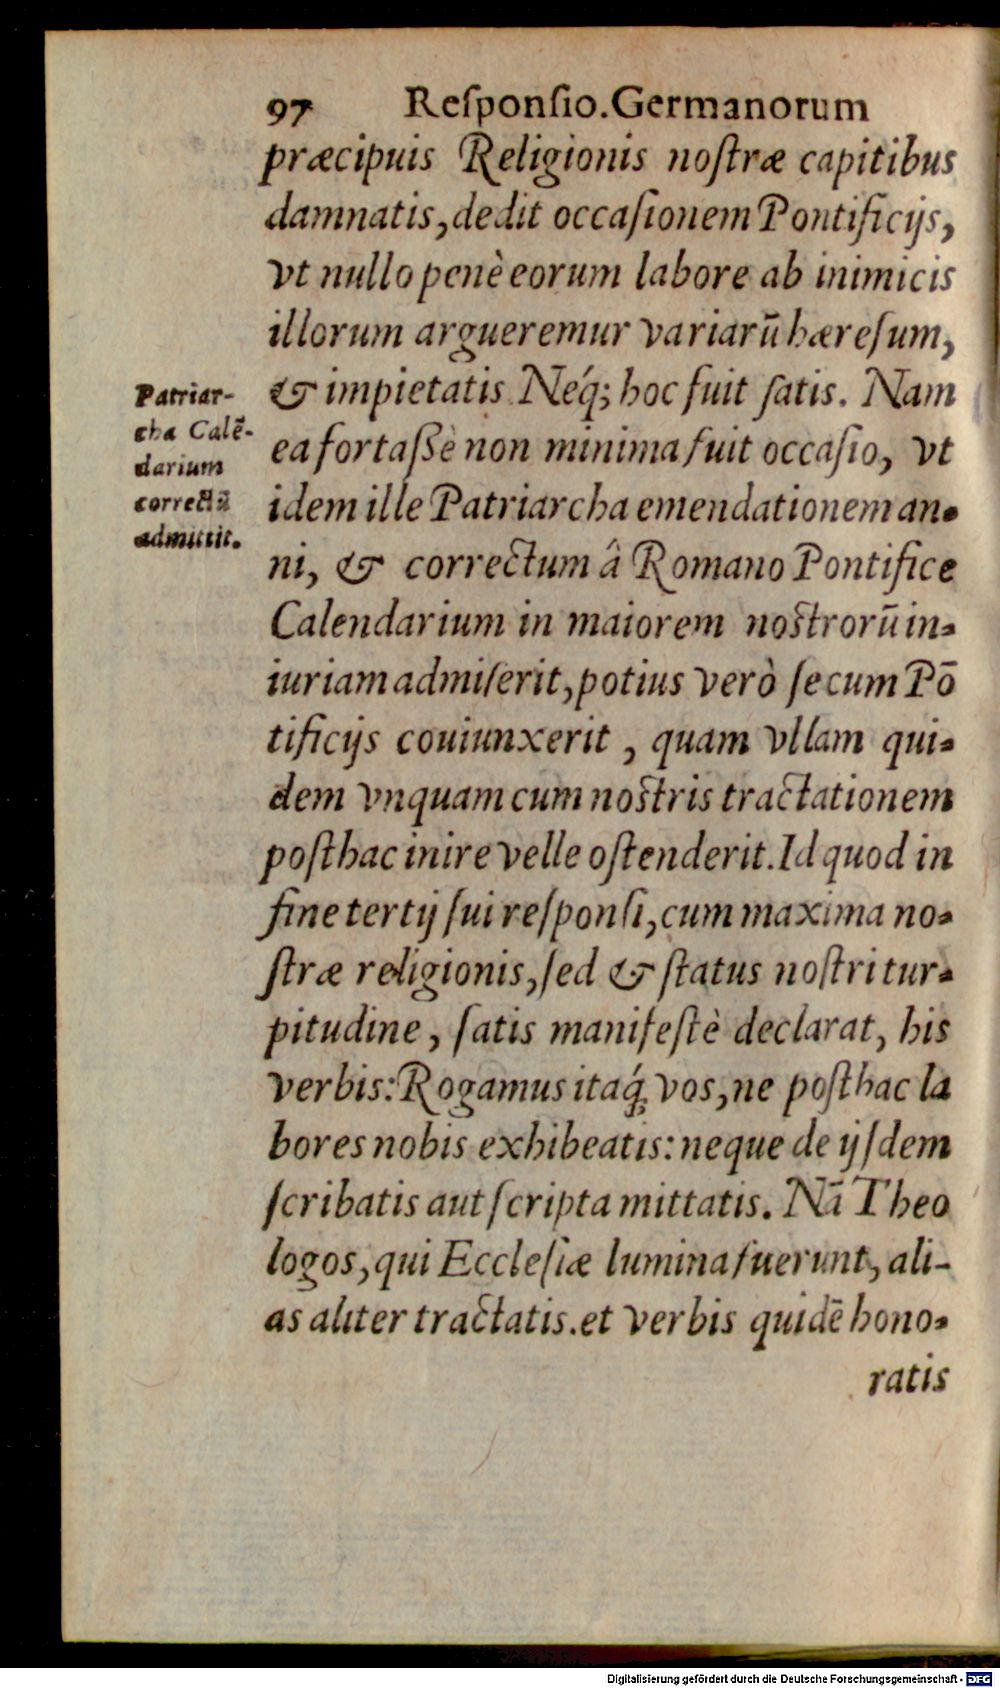 97 Reſponſio. Germanorum
præcipuis Religionis noſtræ capitibus
damnatis, dedit occaſionem Pontificijs,
vt nullo penè eorum labore ab inimicis
illorum argueremur variarū hæreſum,
& impietatis. Neq́; hoc fuit ſatis. Nam
ea fortaßè non minima fuit occaſio, vt
idem ille Patriarcha emendationem an-
ni, & correctum â Romano Pontifice
Calendarium in maiorem noſtrorū in-
iuriam admiſerit, potius verò ſecum Pō
tificijs couiunxerit, quam vllam qui-
dem vnquam cum noſtris tractationem
poſthac inire velle oſtenderit. Id quod in
fine tertij ſui reſponſi, cum maxima no-
ſtræ religionis, ſed & ſtatus noſtri tur-
pitudine, ſatis manifeſtè declarat, his
verbis: Rogamus itaq́; vos, ne poſthac la
bores nobis exhibeatis: neque de ijſdem
ſcribatis aut ſcripta mittatis. Nā Theo
logos, qui Eccleſiæ lumina fuerunt, ali-
as aliter tractatis. et verbis quidē hono-
ratis
Patriar-
cha Calē-
darium
correctū
admittit.
Digitalisierung gefördert durch die Deutsche Forschungsgemeinschaft - DFG